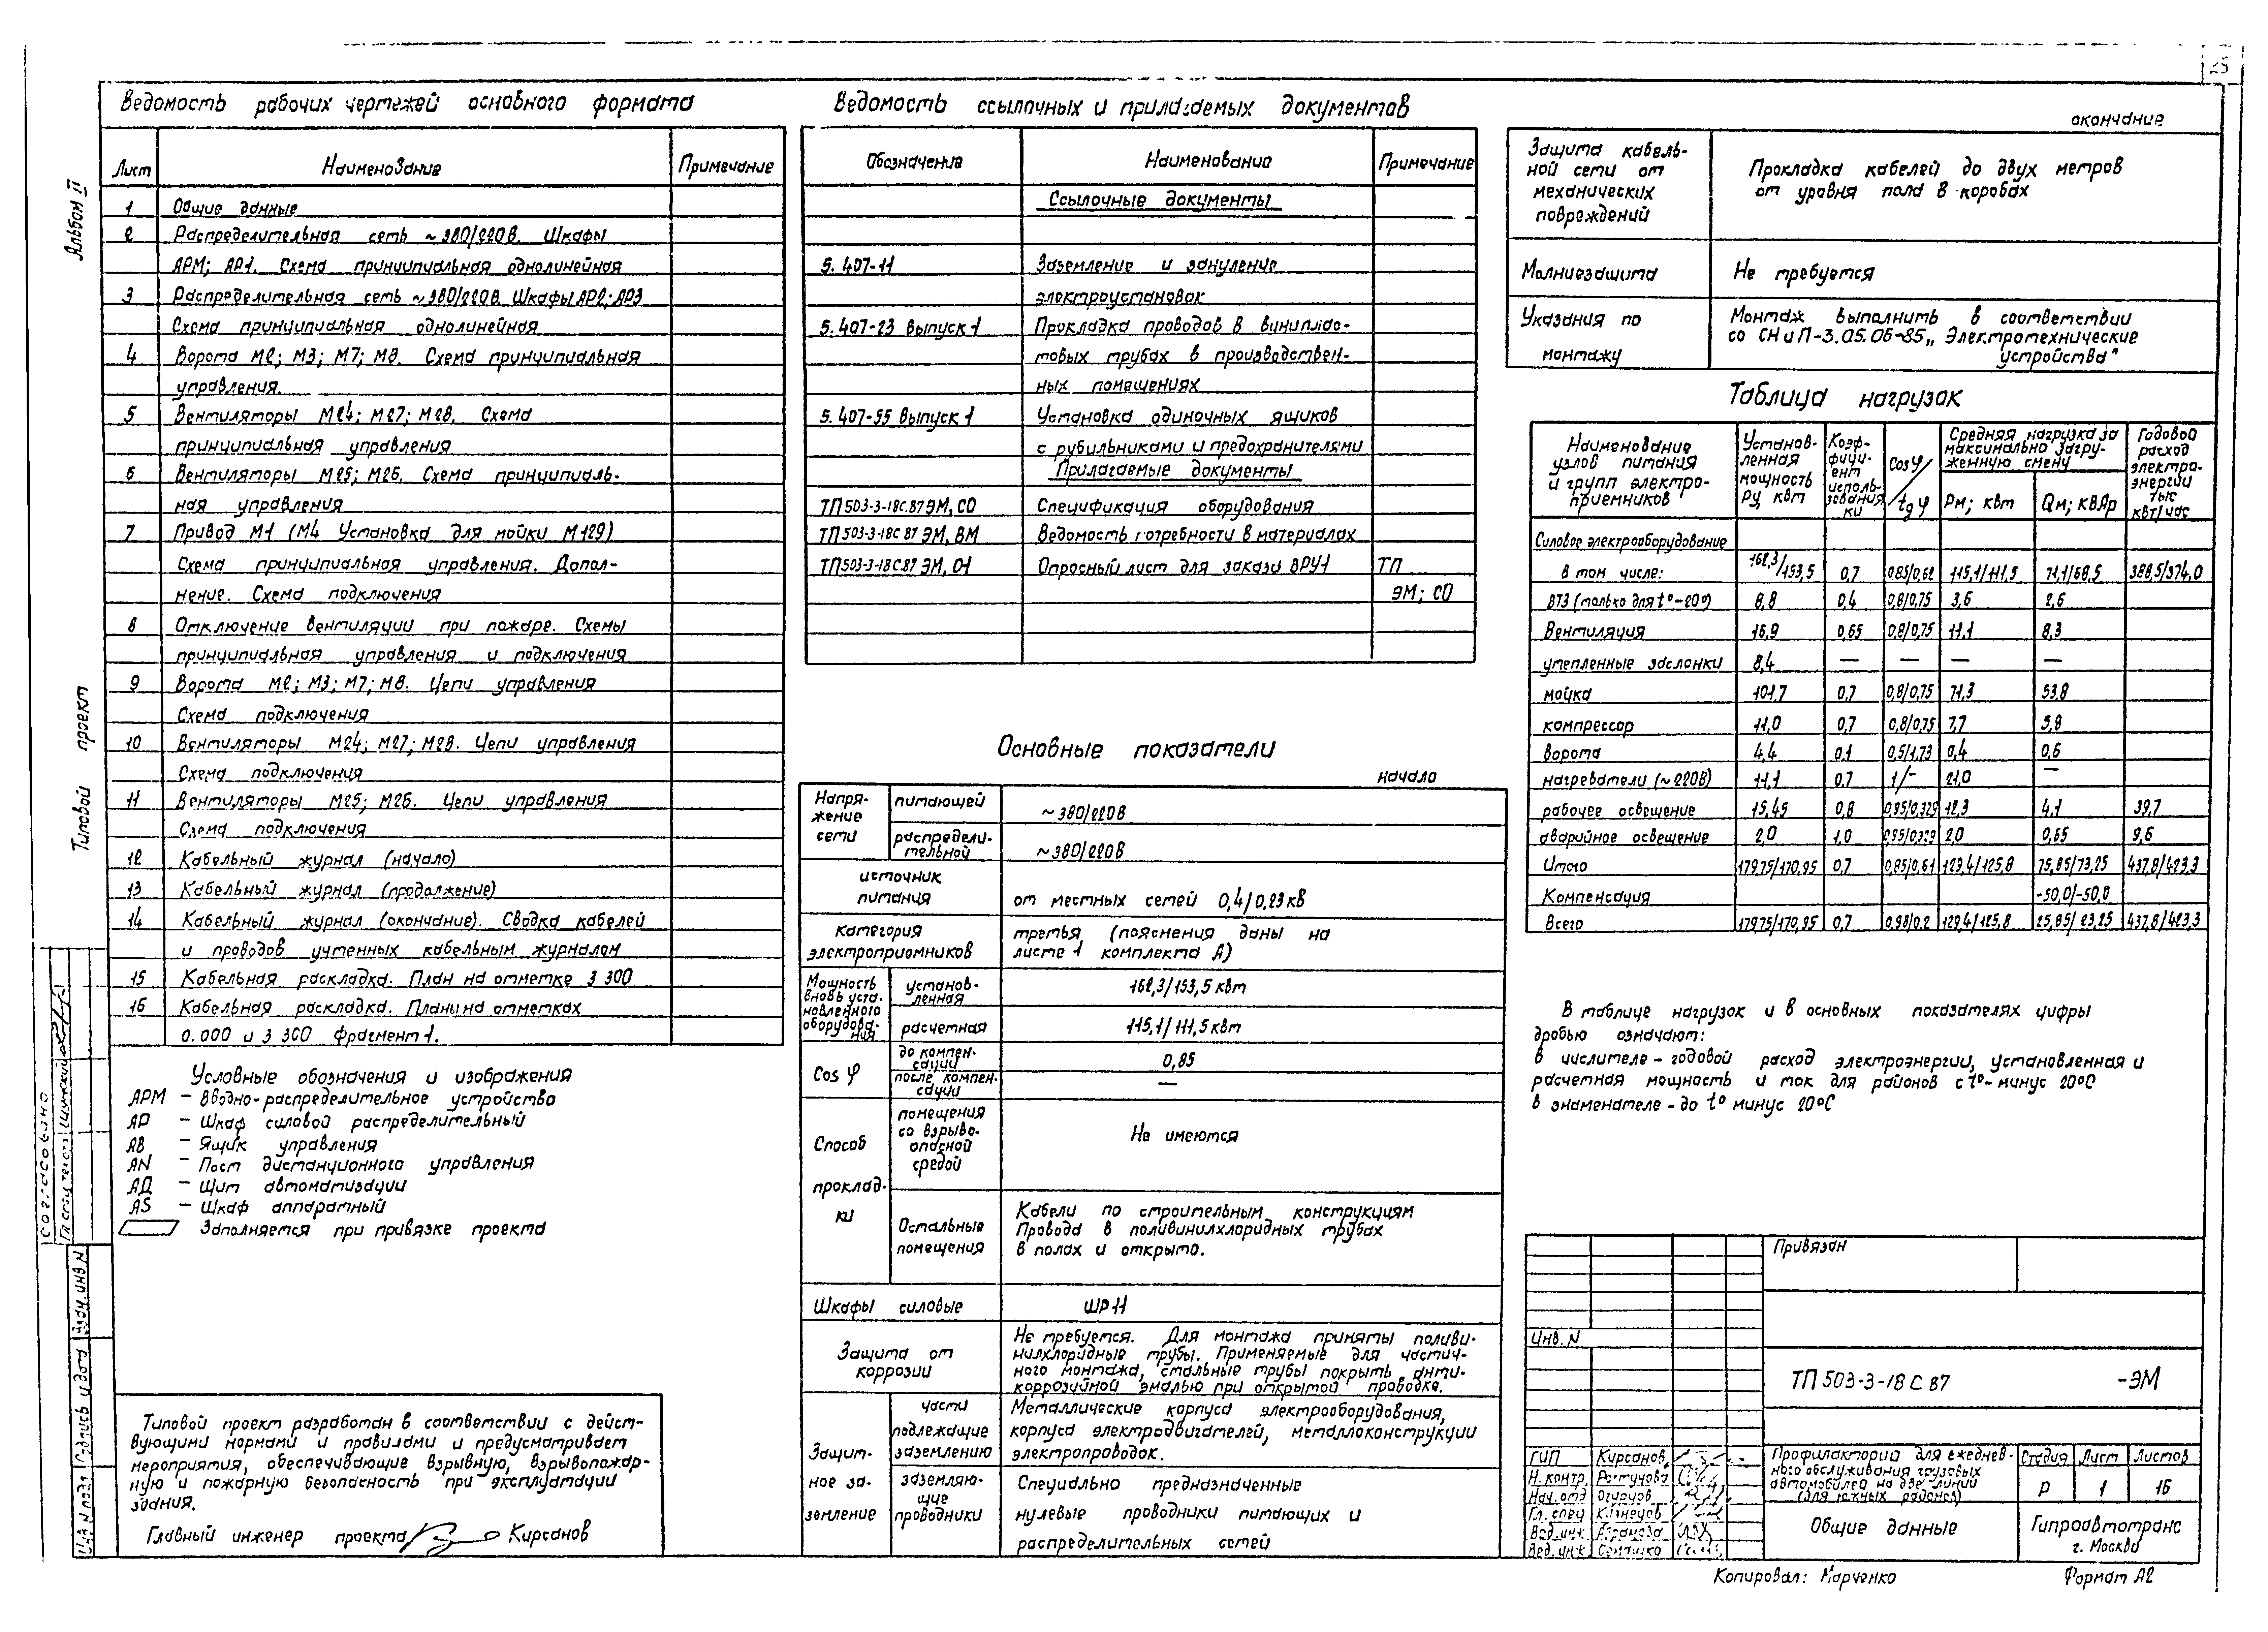 25
Альбом II
Типовой проект
Ведомость рабочих чертежей основного формата
Лист Наименование Примечание
1 Общие данные
2 Распределительная сеть ~380/220В. Шкафы
АРМ; АР1. Схема принципиальная однолинейная
3 Распределительная сеть ~380/220В Шкафы АР2; АР3
Схема принципиальная однолинейная
4 Ворота М2; М3; М7; М8. Схема принципиальная
управления.
5 Вентиляторы М24; М27; М28. Схема
принципиальная управления
6 Вентиляторы М25; М26. Схема принципиаль-
ная управления
7 Привод М1 (М4 Установка для мойки М129)
Схема принципиальная управления. Допол-
нение. Схема подключения
8 Отключение вентиляции при пожаре. Схемы
принципиальная управления и подключения
9 Ворота М2; М3; М7; М8. Цепи управления
Схема подключения
10 Вентиляторы М24; М27; М28. Цепи управления
Схема подключения
11 Вентиляторы М25; М26. Цепи управления
Схема подключения
12 Кабельный журнал (начало)
13 Кабельный журнал (продолжение)
14 Кабельный журнал (окончание). Сводка кабелей
и проводов учтенных кабельным журналом
15 Кабельная раскладка. План на отметке 3 300
16 Кабельная раскладка. Планы на отметках
0.000 и 3 300 Фрагмент 1.
Условные обозначения и изображения
АРМ – Вводно-распределительное устройство
АР – Шкаф силовой распределительный
АВ – Ящик управления
AN – Пост дистанционного управления
АД – Щит автоматизации
AS – Шкаф аппаратный
Заполняется при привязке проекта
Типовой проект разработан в соответствии с дейст-
вующими нормами и правилами и предусматривает
мероприятия, обеспечивающие взрывную, взрывопожар-
ную и пожарную безопасность при эксплуатации
здания.
Главный инженер проекта Кирсанов
Согласовано
Взам. инв N
Подпись и дата
Инв N подл
Ведомость ссылочных и прилагаемых документов
Обозначения Наименование Примечание
Ссылочные документы
5. 407-11 Заземление и зануление
электроустановок
5.407-23 Выпуск 1 Прокладка проводов в винилпла-
товых трубах в производствен-
ных помещениях
5.407-55 Выпуск 1 Установка одиночных ящиков
с рубильниками и предохранителями
Прилагаемые документы
ТП 503-3-18С.87 ЭМ, СО Спецификация оборудования
ТП 503-3-18С 87 ЭМ, ВМ Ведомость потребности в материалах
ТП 503-3-18С 87 ЭМ, О1 Опросный лист для заказа ВРУ1 ТП
ЭМ; СО
Основные показатели
начало
Напря-
жение
сети
питающей ~380/220В
распредели-
тельной ~380/220В
источник
питания от местных сетей 0,4/0,23 кВ
категория
электроприемников
третья (пояснения даны на
листе 1 комплекта А)
Мощность
вновь уста-
новленного
оборудова-
ния
установ-
ленная 162,3/153,5 кВт
расчетная 115,1/111,5 кВт
Cos φ
до компен-
сации 0,85
после компен-
сации —
Способ
проклад-
ки
помещения
со взрыво-
опасной
средой
Не имеются
Остальные
помещения
Кабели по строительным конструкциям
Провода в поливинилхлоридных трубах
в полах и открыто.
Шкафы силовые ШР11
Защита от
коррозии
Не требуется. Для монтажа приняты поливи-
нилхлоридные трубы. Применяемые для частич-
ного монтажа, стальные трубы покрыть анти-
коррозийной эмалью при открытой проводке.
Защит-
ное за-
земление
части
подлежащие
заземлению
Металлические корпуса электрооборудования,
корпуса электродвигателей, металлоконструкции
электропроводок.
заземляю-
щие
проводники
Специально предназначенные
нулевые проводники питающих и
распределительных сетей
окончание
Защита кабель-
ной сети от
механических
повреждений
Прокладка кабелей до двух метров
от уровня пола в коробах
Молниезащита Не требуется
Указания по
монтажу
Монтаж выполнить в соответствии
со СНиП-3.05.06-85 „Электротехнические
устройства"
Таблица нагрузок
Наименование
узлов питания
и групп электро-
приемников
Установ-
ленная
мощность
Ру, кВт
Коэф-
фици-
ент
исполь-
зования
ки
Cosφ/tgφ
Средняя нагрузка за
максимально загру-
женную смену
Рм; кВт Qм; кВАр
Годовой
расход
электро-
энергии
тыс
квт/час
Силовое электрооборудование
в том числе: 162,3/153,5 0,7 0,85/0,62 115,1/111,5 71,1/68,5 388,5/374,0
ВТЗ (только для t°-20°) 8,8 0,4 0,8/0,75 3,6 2,6
Вентиляция 16,9 0,65 0,8/0,75 11,1 8,3
утепленные заслонки 8,4 — — — —
мойка 101,7 0,7 0,8/0,75 71,3 53,8
компрессор 11,0 0,7 0,8/0,75 7,7 5,8
ворота 4,4 0,1 0,5/1,73 0,4 0,6
нагреватели (~220В) 11,1 0,7 1/- 21,0 —
рабочее освещение 15,45 0,8 0,95/0,329 12,3 4,1 39,7
аварийное освещение 2,0 1,0 0,95/0,329 2,0 0,65 9,6
Итого 179,75/170,95 0,7 0,85/0,61 129,4/125,8 75,85/73,25 437,8/423,3
Компенсация -50,0/-50,0
Всего 179,75/170,95 0,7 0,98/0.2 129,4/125,8 25,85/23,25 437,8/423,3
В таблице нагрузок и в основных показателях цифры
дробью означают:
в числителе – годовой расход электроэнергии, установленная и
расчетная мощность и ток для районов с t°- минус 20°С
в знаменателе – до t° минус 20°С
Привязан
Инв. N
ТП 503-3-18 С 87 -ЭМ
ГИП Кирсанов
Н. контр.
Нач. отд Огурцов
Гл. спец
Вед. инж.
Вед. инж
Профилакторий для ежеднев-
ного обслуживания грузовых
автомобилей на две линии
(для южных районов)
Стадия Лист Листов
Р 1 16
Общие данные
Гипроавтотранс
г. Москва
Копировал: Марченко Формат А2